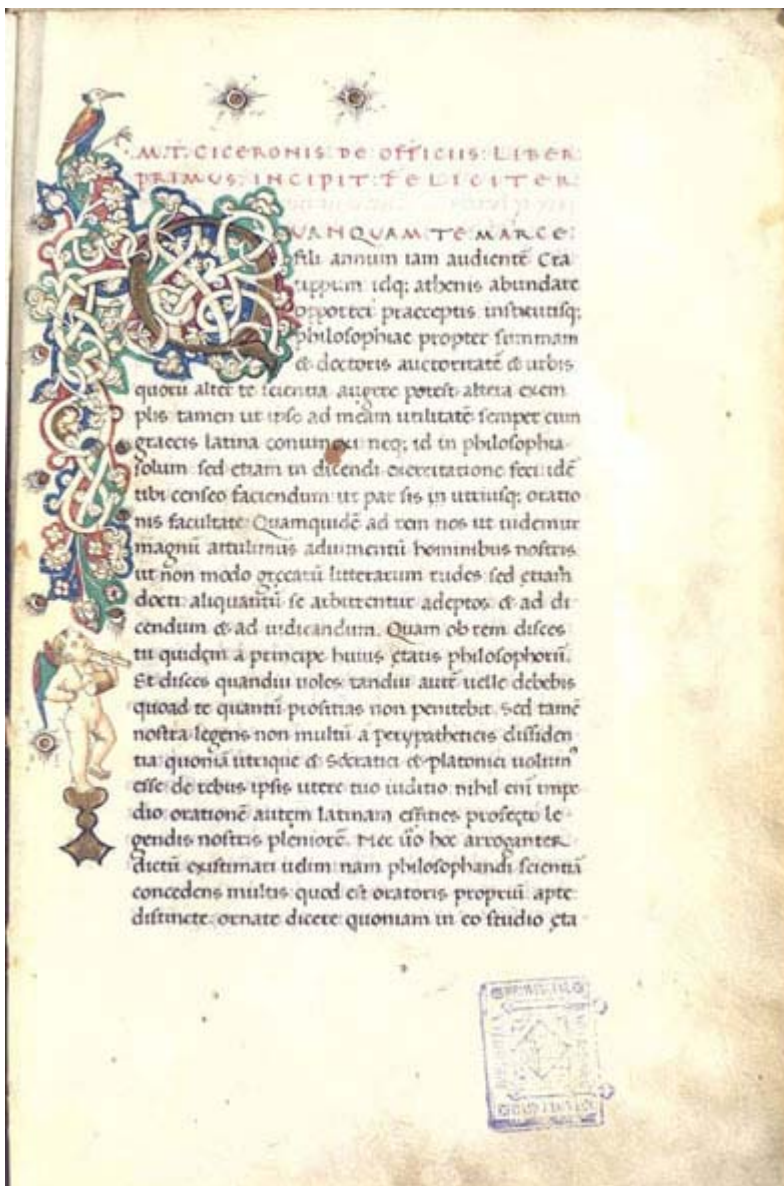 M. T. CICERONIS DE OFFICIIS LIBER
PRIMUS INCIPIT FELICITER
QUANQUAM TE MARCE
fili annum iam audientē Cra
tippum idq; athenis abundare
oportet praeceptis institutisq;
philosophiae propter summam
& doctoris auctoritatē & urbis
quorū alter te scientia augere potest altera exem
plis tamen ut ipse ad meam utilitatē semper cum
graecis latina coniunxi neq; id in philosophia
solum sed etiam in dicendi exercitatione feci idē
tibi censeo faciendum ut par sis in utriusq; oratio
nis facultate Quamquidē ad rem nos ut uidemur
magnū attulimus adiumentū hominibus nostris
ut non modo gręcarū litterarum rudes sed etiam
docti aliquantū se arbitrentur adeptos & ad di
cendum & ad iudicandum. Quam ob rem disces
tu quidęm a principe huius ętatis philosophorū.
Et disces quandiu uoles tandiu autē uelle debebis
quoad te quantū proficias non penitebit. Sed tamē
nostra legens non multū a perypatheticis dissiden
tia quoniā utrique & Socratici & platonici uolumꝰ
esse de rebus ipsis utere tuo iuditio nihil enī impe
dio orationē autem latinam efficies profecto le
gendis nostris pleniorē. Nec ūo hoc arroganter
dictū existimari uelim nam philosophandi scientiā
concedens multis quod est oratoris propriū apte
distincte ornate dicere quoniam in eo studio ęta